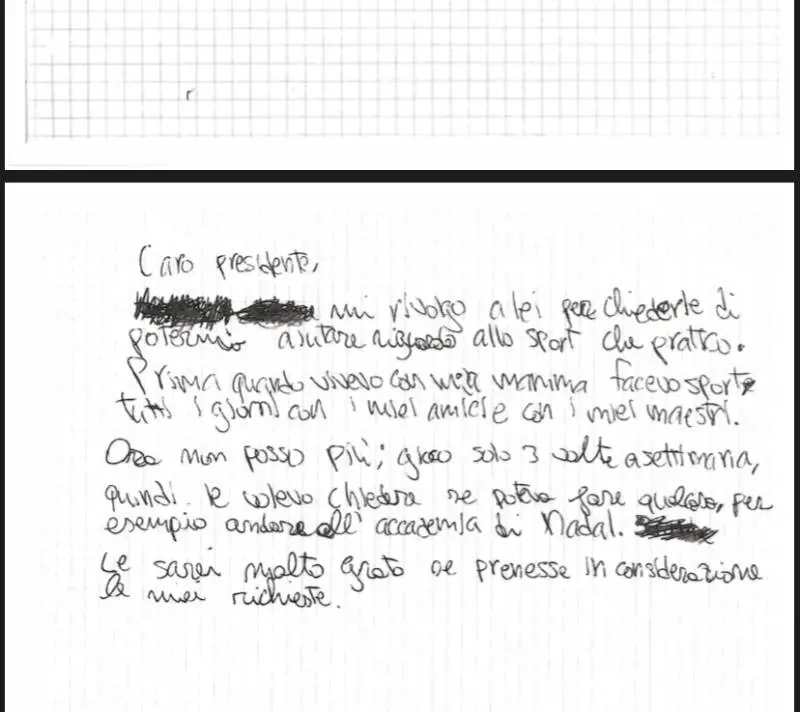 r
Caro presidente,
mi rivolgo a lei per chiederle di
potermi aiutare riguardo allo sport che pratico.
Prima quando vivevo con mia mamma facevo sport
tutti i giorni con i miei amici e con i miei maestri.
Ora non posso più; gioco solo 3 volte a settimana,
quindi le volevo chiedere se poteva fare qualcosa, per
esempio andare all'accademia di Nadal.
Le sarei molto grato se prenesse in considerazione
le mie richieste.